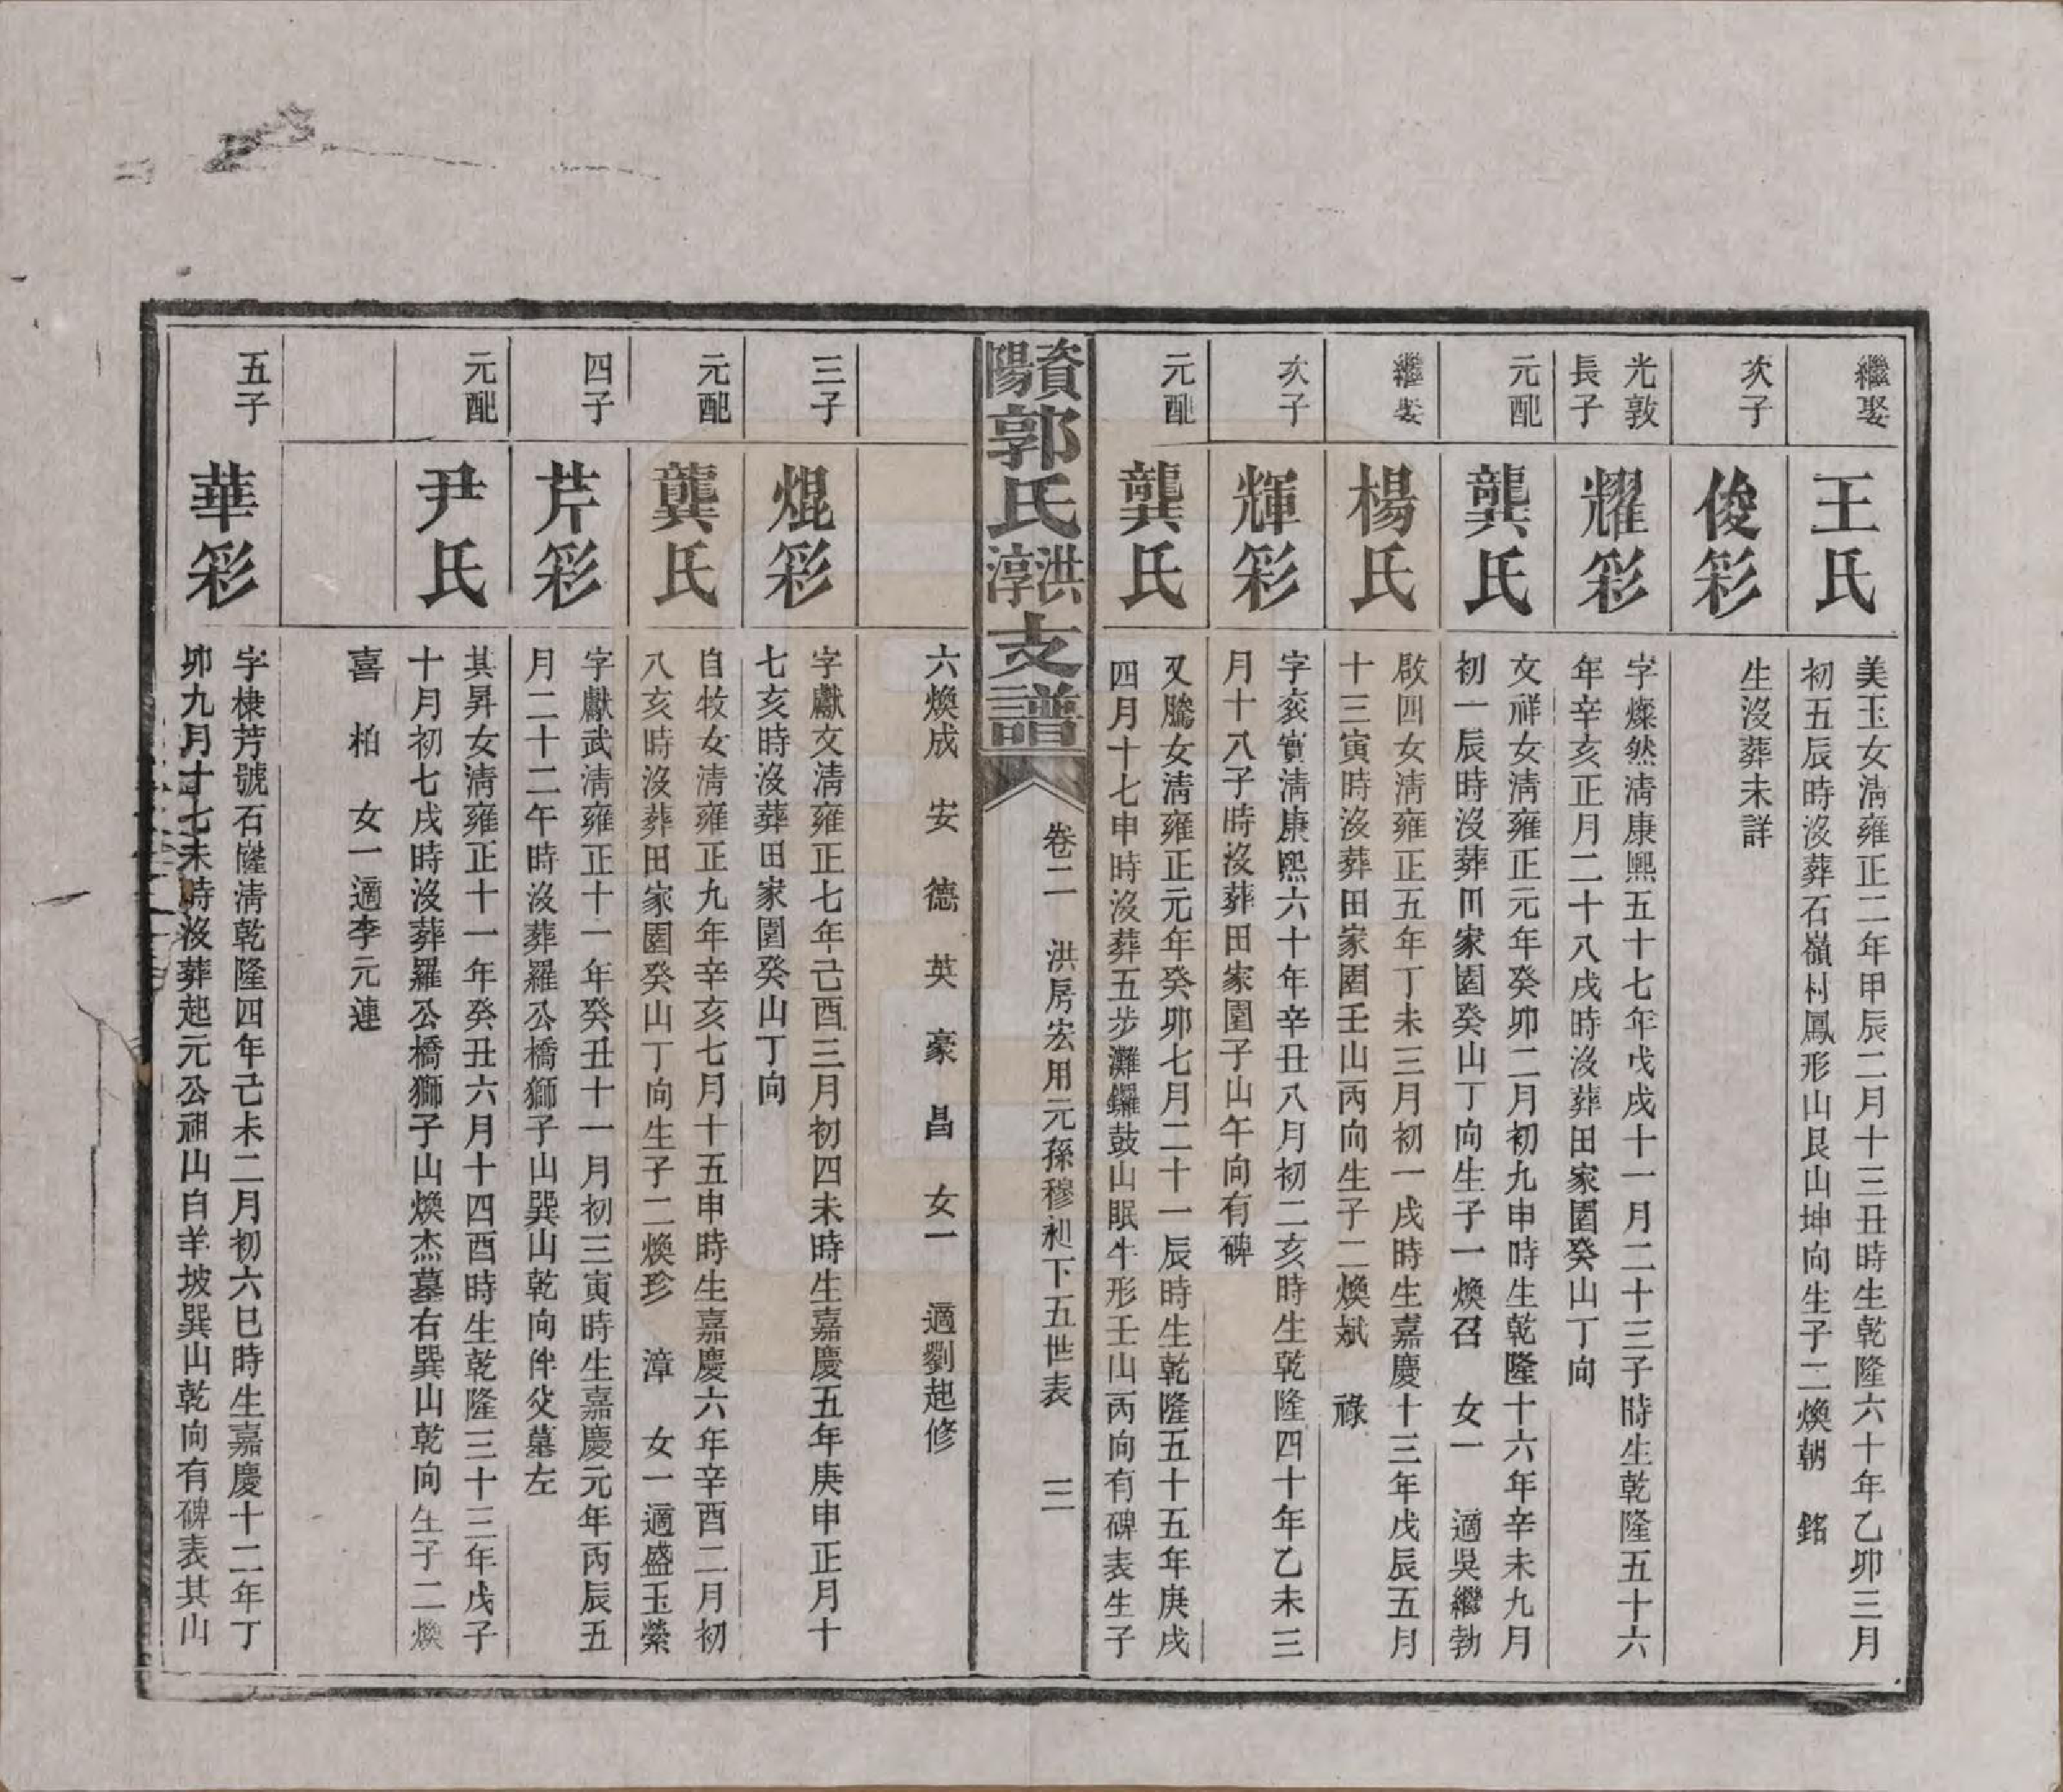 繼娶
王氏
美玉女清雍正二年甲辰二月十三丑時生乾隆六十年乙卯三月
初五辰時沒葬石嶺村鳳形山艮山坤向生子二煥朝　銘
次子
俊彩
生沒葬未詳
光敦
長子
耀彩
字燦然清康熙五十七年戊戌十一月二十三子時生乾隆五十六
年辛亥正月二十八戌時沒葬田家園癸山丁向
元配
龔氏
文祥女清雍正元年癸卯二月初九申時生乾隆十六年辛未九月
初一辰時沒葬田家園癸山丁向生子一煥召　女一　適吳繼勃
繼娶
楊氏
啟四女清雍正五年丁未三月初一戌時生嘉慶十三年戊辰五月
十三寅時沒葬田家園壬山丙向生子二煥斌　祿
次子
輝彩
字亥實清康熙六十年辛丑八月初二亥時生乾隆四十年乙未三
月十八子時沒葬田家園子山午向有碑
元配
龔氏
又騰女清雍正元年癸卯七月二十一辰時生乾隆五十五年庚戌
四月十七申時沒葬五步灘鑼鼓山眠牛形壬山丙向有碑表生子
資陽郭氏洪淳支譜
卷二　洪房宏用元孫穆昶下五世表　三
六煥成　安　德　英　豪　昌　女一　適劉起修
三子
焜彩
字獻文清雍正七年己酉三月初四未時生嘉慶五年庚申正月十
七亥時沒葬田家園癸山丁向
元配
龔氏
自牧女清雍正九年辛亥七月十五申時生嘉慶六年辛酉二月初
八亥時沒葬田家園癸山丁向生子二煥珍　漳　女一適盛玉縈
四子
芹彩
字獻武清雍正十一年癸丑十一月初三寅時生嘉慶元年丙辰五
月二十二午時沒葬羅公橋獅子山巽山乾向伴父墓左
元配
尹氏
其昇女清雍正十一年癸丑六月十四酉時生乾隆三十三年戊子
十月初七戌時沒葬羅公橋獅子山煥杰墓右巽山乾向生子二煥
喜　柏　女一適李元連
五子
華彩
字棣芳號石㠉清乾隆四年己未二月初六巳時生嘉慶十二年丁
卯九月十七未時沒葬起元公祖山白羊坡巽山乾向有碑表其山